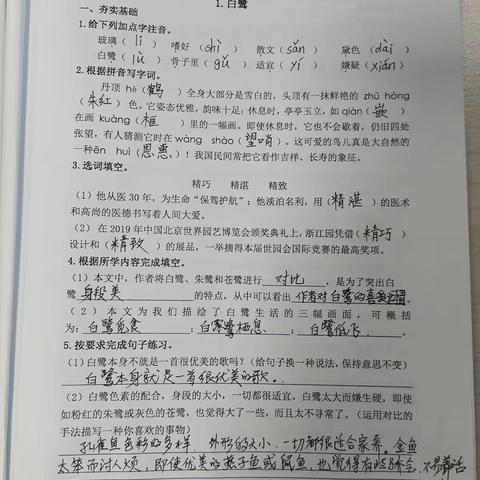 1.白鹭
一、夯实基础
1.给下列加点字注音。
玻璃（ lí ） 嗜好（ shì ） 散文（ sǎn ） 黛色（ dài ）
白鹭（ lù ） 骨子里（ gǔ ） 适宜（ yí ） 嫌疑（ xián ）
2.根据拼音写字词。
丹顶 hè（ 鹤 ）全身大部分是雪白的，头顶有一抹鲜艳的 zhū hóng
（ 朱红 ）色，它姿态优雅，韵味十足；休息时，亭亭玉立，如 qiàn（ 嵌 ）
在画 kuàng（ 框 ）里的一幅画，即使休息时，它也不会歇着，仍旧四处
张望，有人猜测它时在 wàng shào（ 望哨 ）。这可爱的鸟儿真是大自然的
一种ēn huì（ 恩惠 ）！我国民间常把它看作吉祥、长寿的象征。
3.选词填空。
精巧 精湛 精致
（1）他从医 30 年，为生命“保驾护航”；他淡泊名利，用（ 精湛 ）的医术
和高尚的医德书写着人间大爱。
（2）在 2019 年中国北京世界园艺博览会颁奖典礼上，浙江园凭借（ 精巧 ）
设计和（ 精致 ）的展品，一举摘得本届世园会国际竞赛的最高奖项。
4.根据所学内容完成填空。
（1）本文中，作者将白鹭、朱鹭和苍鹭进行 对比 ，是为了突出白
鹭 身段美 的特点，从中可以看出 作者对白鹭的喜爱
（2）本文为我们描绘了白鹭生活的三幅画面，可概括
为：白鹭觅食 ；白鹭栖息 ；白鹭低飞 。
5.按要求完成句子练习。
（1）白鹭本身不就是一首很优美的歌吗？（给句子换一种说法，保持意思不变）
白鹭本身就是一首很优美的歌。
（2）白鹭色素的配合，身段的大小，一切都很适宜。白鹭太大而嫌生硬，即使
如粉红的朱鹭或灰色的苍鹭，也觉得大了一些，而且太不寻常了。（运用对比的
手法描写一种你喜欢的事物）
孔雀鱼色彩的多样，外形的大小，一切都很适合家养。金鱼
太笨而讨人烦，即使优美的燕子鱼或 鱼，也觉得有些 ，不易养活